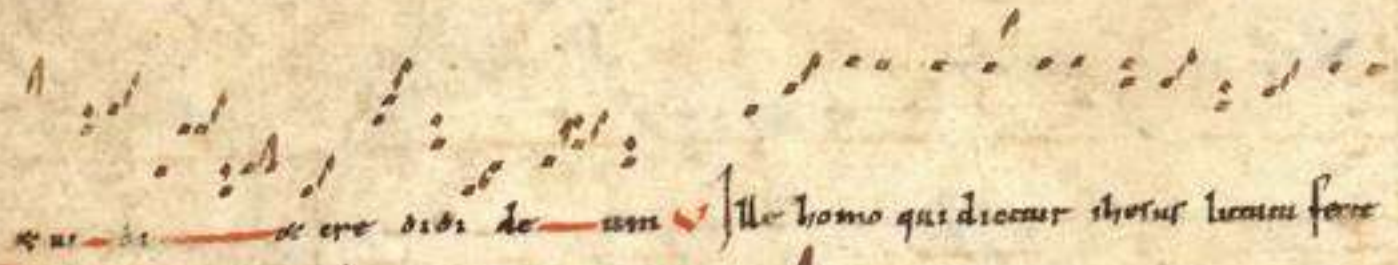 et ui di et cre didi de um V Ille homo qui dicitur ihesus lutum fecit